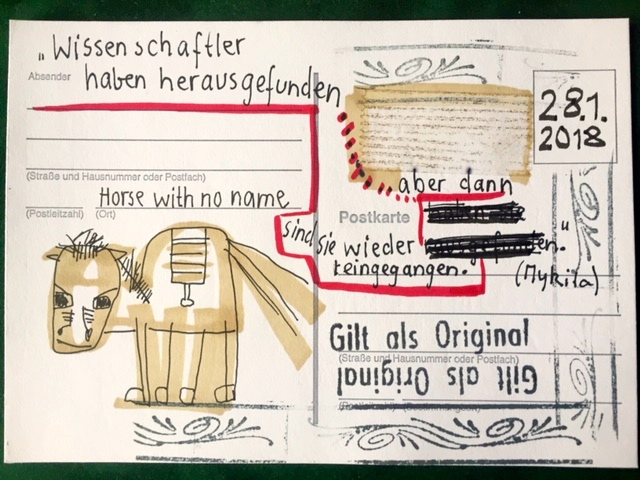 „Wissenschaftler
Absender
haben herausgefunden
28.1.
2018
(Straße und Hausnummer oder Postfach)
aber dann
Horse with no name
(Postleitzahl) (Ort)
Postkarte
sind sie wieder
reingegangen.“
(Mykita)
Gilt als Original
(Straße und Hausnummer oder Postfach)
Gilt als Original